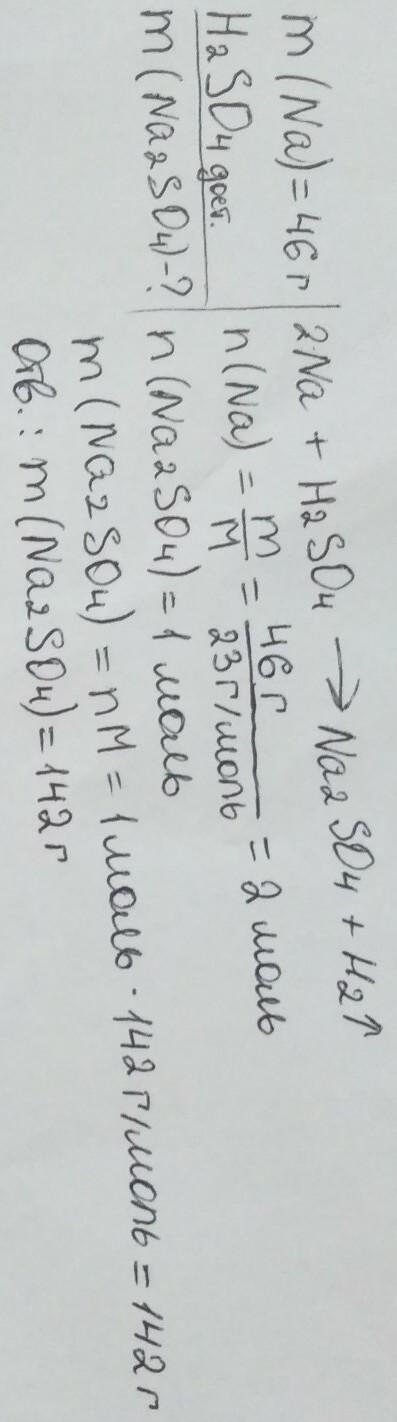 m(Na)=46г
H₂SO₄ дост.
m(Na₂SO₄)-?
2Na + H₂SO₄ → Na₂SO₄ + H₂↑
n(Na) = m/M = 46г/23г/моль = 2 моль
n(Na₂SO₄) = 1 моль
m(Na₂SO₄) = nM = 1 моль · 142 г/моль = 142 г
Отв.: m(Na₂SO₄) = 142 г